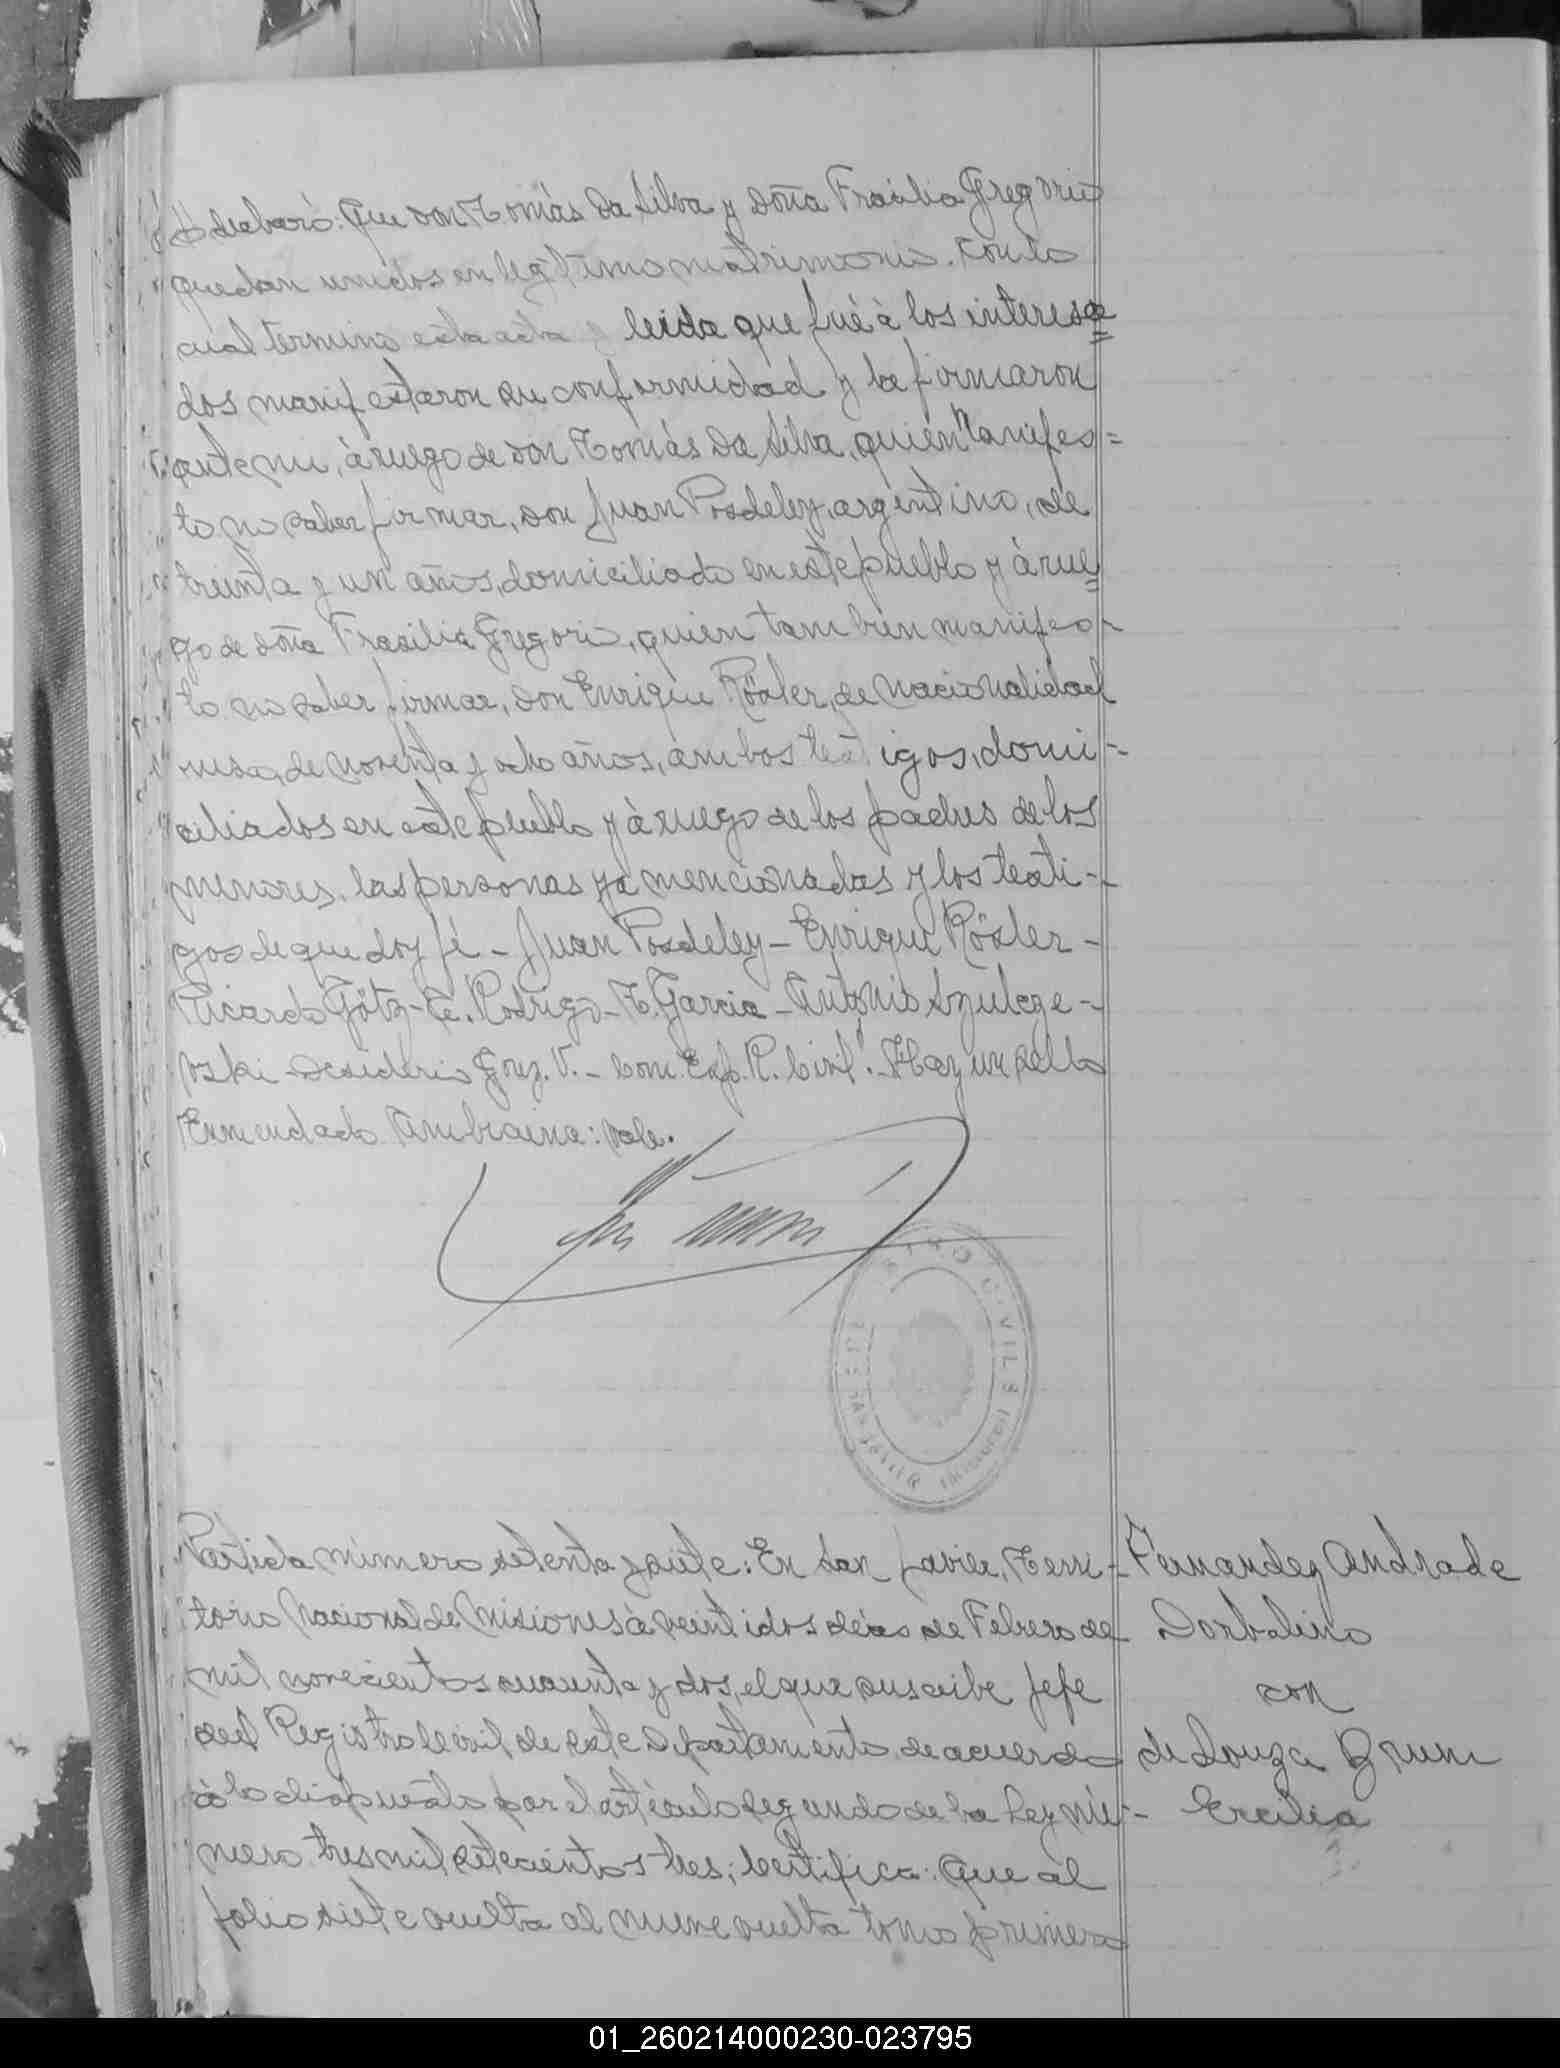 declaró: Que don Tomás Da Silva y doña Frasilia Gregorio
quedan unidos en legítimo matrimonio. Con lo
cual termino esta acta y leida que fué à los interesa=
dos manifestaron su conformidad y la firmaron
ante mi, à ruego de don Tomás Da Silva, quién manifes=
to no saber firmar, don Juan Posdeley, argentino, de
treinta y un años, domiciliado en este pueblo y à rue=
go de doña Frasilia Gregorio, quien tam bien manifes-
to no saber firmar, don Enrique Rösler, de nacionalidad
rusa, de noventa y ocho años, ambos testigos, domi-
ciliados en este pueblo y à ruego de los padres de los
menores, las personas ya mencionadas y los testi-
gos de que doy fé - Juan Posdeley - Enrique Rösler -
Ricardo Götz - E. Rodrigo - T. Garcia - Antonio Szulcze-
voski - Desiderio Gonz. V. - Com. Exp. R. Civil". - Hay un sello
Enmendado : vale.
REGISTRO CIVIL
SAN JAVIER (MISIONES)
Partida número setenta y siete: En San Javier, Terri-
torio Nacional de Misiones à veintidos dias de Febrero de
mil novecientos cuarenta y dos, el que suscribe Jefe
del Registro Civil de este Departamento de acuerdo
à lo dispuesto por el artículo segundo de la Ley nú-
mero tres mil setecientos tres; Certifica: Que al
folio siete vuelta al nueve vuelta tomo primero
Fernandez Andrade
Dorbalino
con
de Souza Brum
Ercilia
01_260214000230-023795